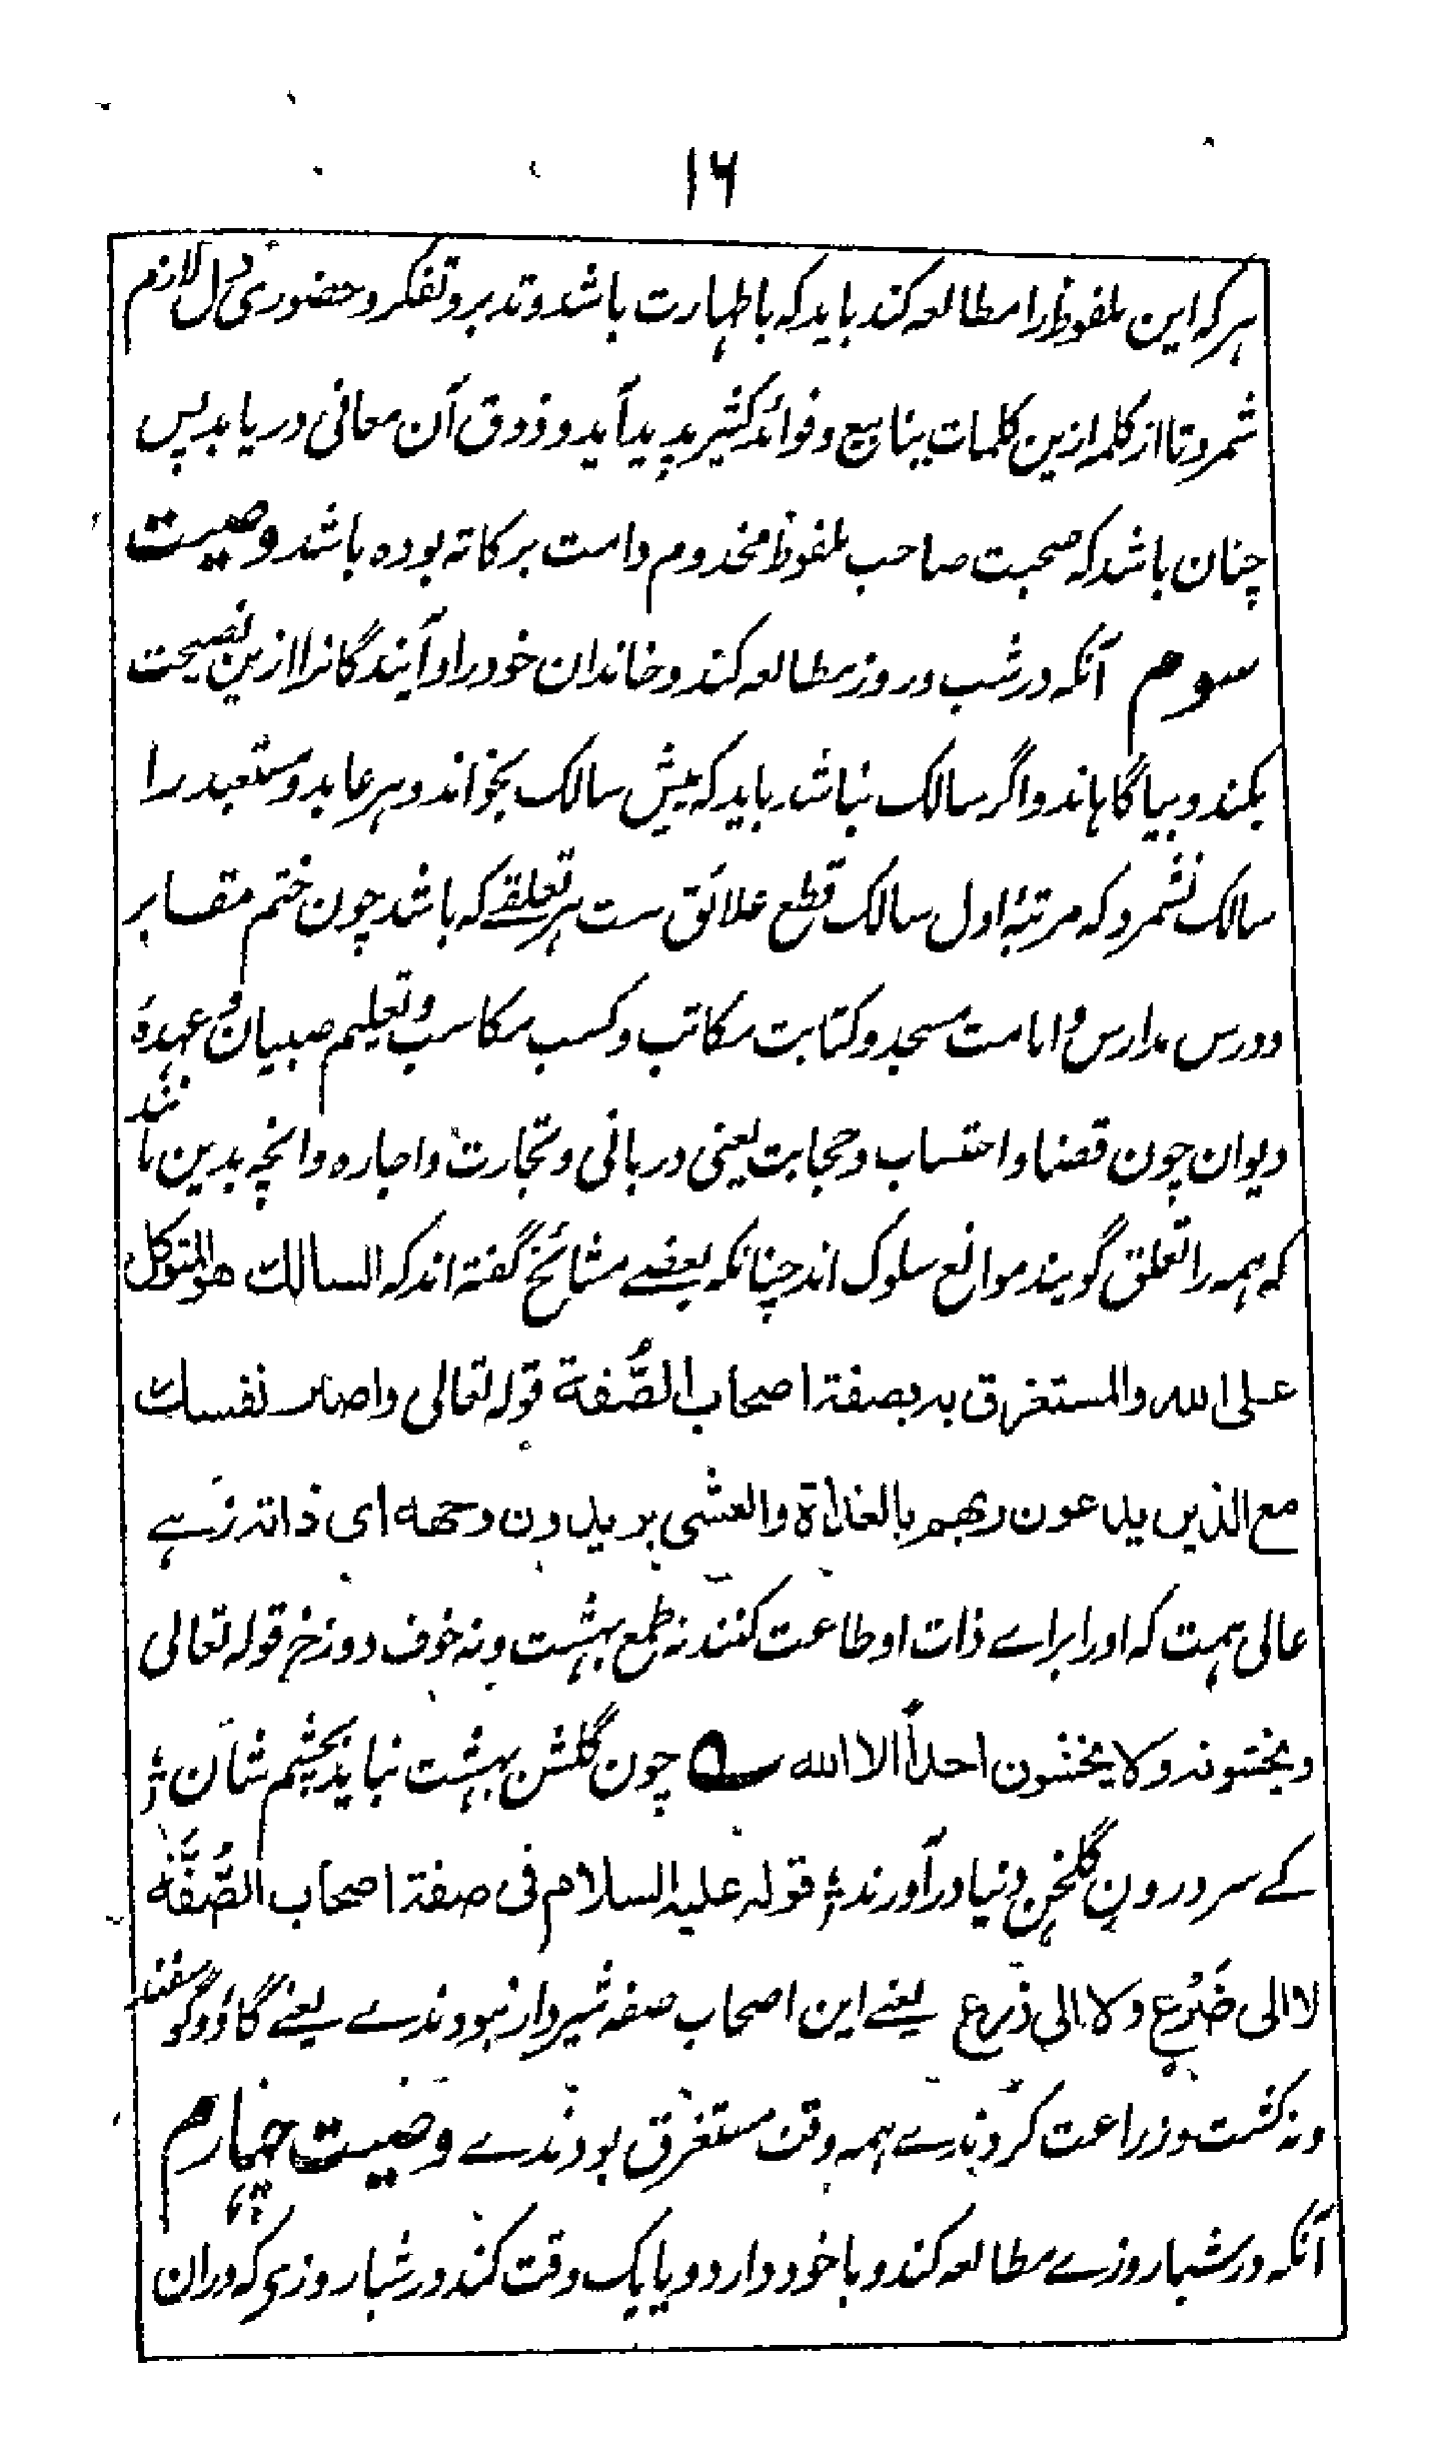 ۱۶
هر که این ملفوظ را مطالعه کند باید که با طهارت باشد و تدبر و تفکر و حضوری دل لازم
شمرد تا از کلمه ازین کلمات ینابیع و فوائد کثیر پدید آید و ذوق آن معانی دریابد پس
چنان باشد که صحبت صاحب ملفوظ مخدوم دامت برکاته بوده باشد وصیت
سوم آنکه در شب و روز مطالعه کند و خاندان خود را و آیندگانرا ازین نصیحت
بکند و بیاگاهاند و اگر سالک نباشد باید که پیش سالک بخواند و هر عابد و متعبد را
سالک نشمرد که مرتبهٔ اول سالک قطع علائق ست هر تعلقے که باشد چون ختم مقابر
و درس مدارس و امامت مسجد و کتابت مکاتب و کسب مکاسب و تعلیم صبیان و عهدهٔ
دیوان چون قضا و احتساب و حجابت یعنی دربانی و تجارت و اجاره و انچه بدین مانند
که همه را تعلق گویند موانع سلوک اند چنانکه بعضے مشائخ گفته اند که السالک هو المتوکل
علی الله والمستغرق به بصفة اصحاب الصُّفة قوله تعالی واصبر نفسک
مع الذین یدعون ربهم بالغداة والعشی یریدون وجهه ای ذاته زہے
عالی همت که او را براے ذات او طاعت کنند نه طمع بهشت و نه خوف دوزخ قوله تعالی
ویخشونه ولا یخشون احداً الا الله ؎ چون گلشن بهشت نیاید بچشم شان ؛
کے سر درون گلخن دنیا در آورند ؛ قوله علیه السلام فی صفة اصحاب الصُّفَّة
لا الی ضَرْعٍ ولا الی ذرع یعنے این اصحاب صفه شیردار نبودندے یعنے گاؤ و گوسفند
و نه کشت و زراعت کردندے همه وقت مستغرق بودندے وصیت چهارم
آنکه در شباروزے مطالعه کند و با خود دارد و یا یک وقت کند در شباروزی که دران